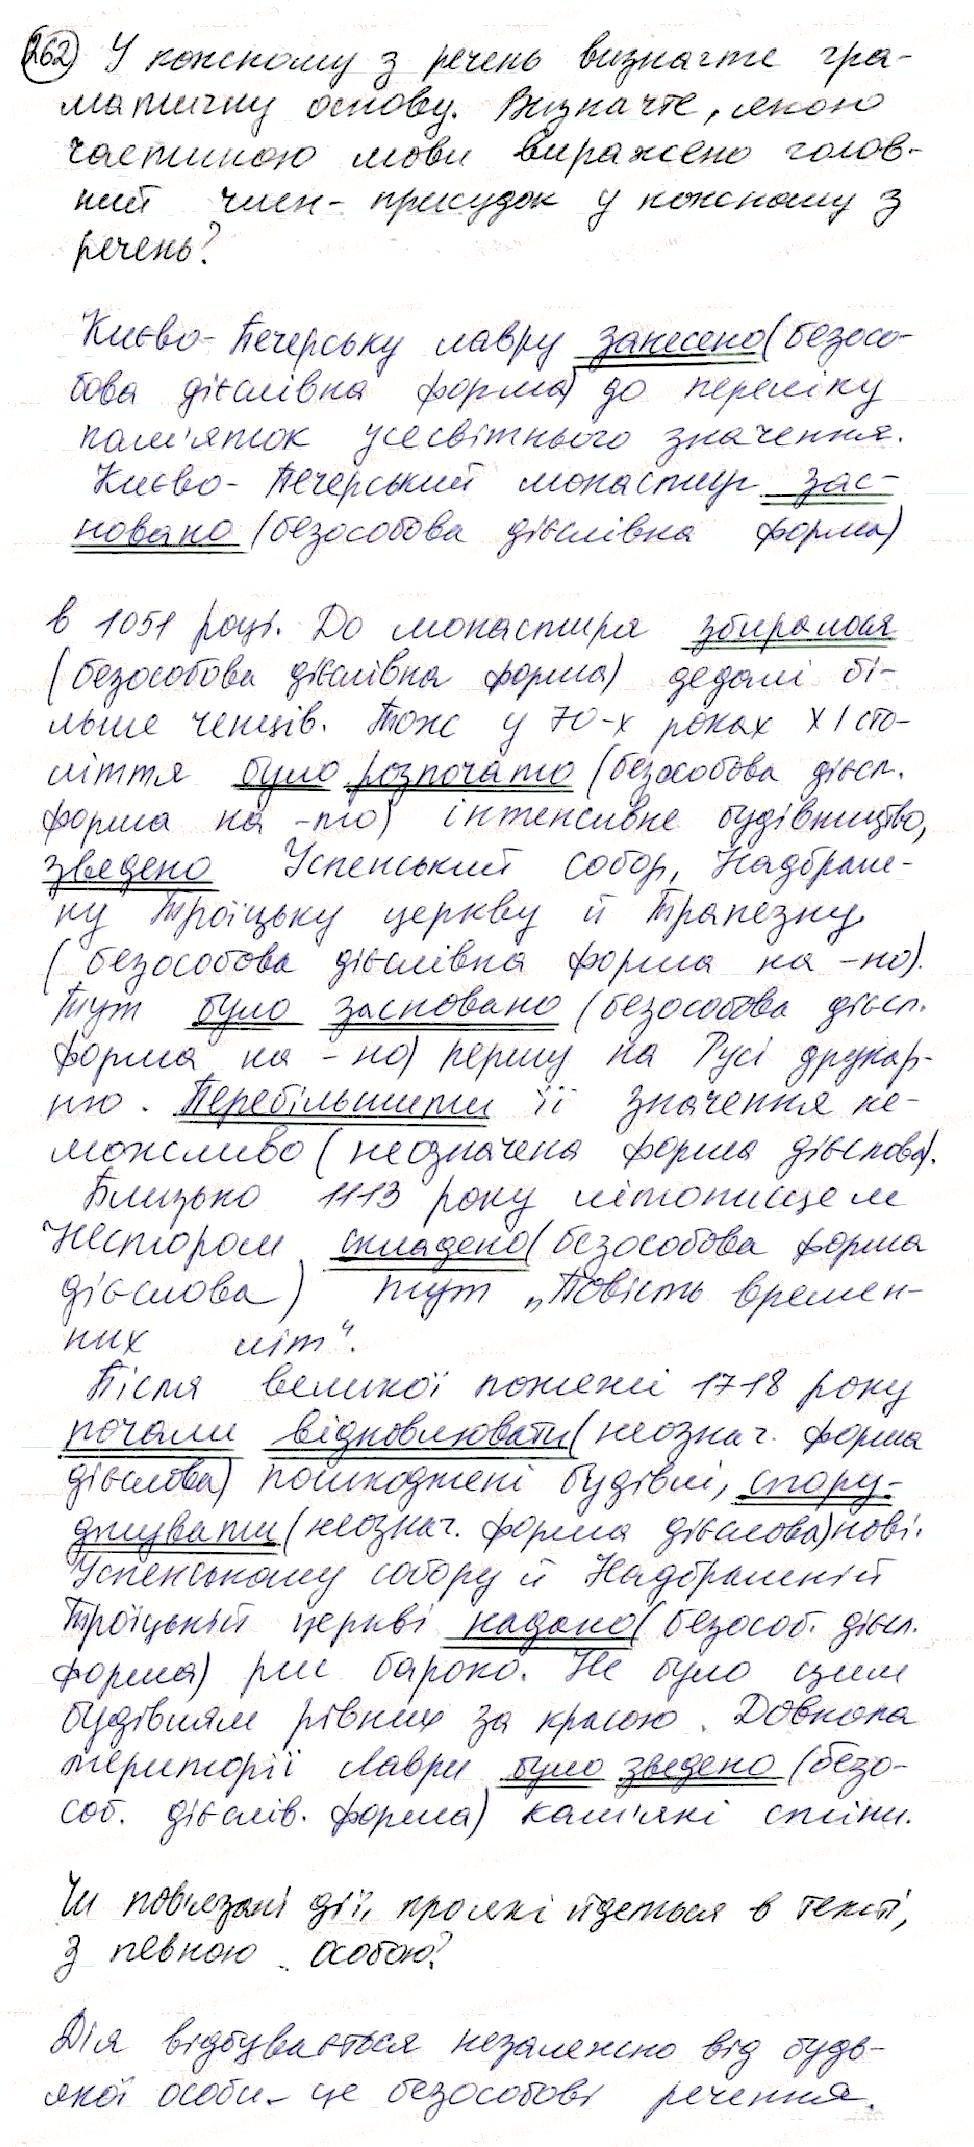 262 У кожному з речень визначте гра-
матичну основу. Визначте, якою
частиною мови виражено голов-
ний член- присудок у кожному з
речень?
Києво-Печерську лавру занесено (безосо-
бова дієслівна форма) до переліку
пам'яток усесвітнього значення.
Києво-Печерський монастир зас-
новано (безособова дієслівна форма)
в 1051 році. До монастиря збиралося
(безособова дієслівна форма) дедалі бі-
льше ченців. Тож у 70-х роках XI сто-
ліття було розпочато (безособова дієсл.
форма на -то) інтенсивне будівництво,
зведено Успенський собор, Надбрам-
ну Троїцьку церкву й Трапезну
(безособова дієслівна форма на -но).
Тут було засновано (безособова дієсл.
форма на -но) першу на Русі друкар-
ню. Перебільшити її значення не-
можливо (неозначена форма дієслова).
Близько 1113 року літописцем
Нестором складено (безособова форма
дієслова) тут „Повість времен-
них літ".
Після великої пожежі 1718 року
почали відновлювати (неознач. форма
дієслова) пошкоджені будівлі, спору-
джувати (неознач. форма дієслова) нові.
Успенському собору й Надбрамній
Троїцькій церкві надано (безособ. дієсл.
форма) рис бароко. Не було цим
будівлям рівних за красою. Довкола
території Лаври було зведено (безо-
соб. дієслів. форма) кам'яні стіни.
Чи пов'язані дії, про які йдеться в тексті,
з певною особою?
Дія відбувається незалежно від будь-
якої особи - це безособові речення.